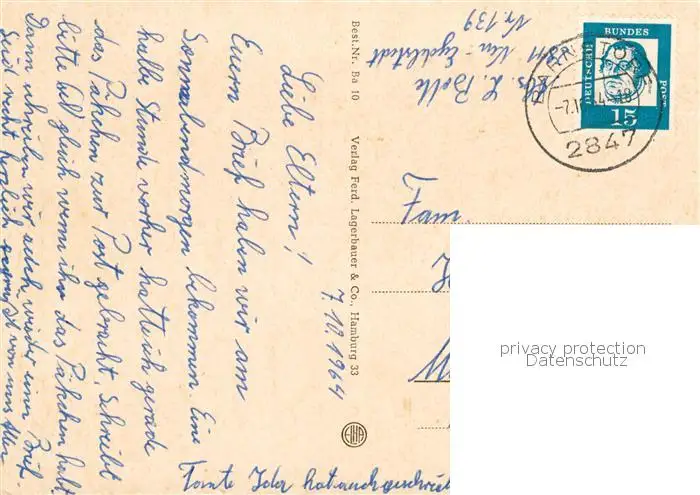 7.10.1964
Liebe Eltern!
Euern Brief haben wir am
Sonnabendmorgen bekommen. Eine
halbe Stunde vorher hatte ich gerade
das Päckchen zur Post gebracht. Schreibt
bitte gleich wenn ihr das Päkchen habt.
Dann schreiben wir auch wieder einen Brief.
Seid recht herzlich gegrüßt von uns Allen
Tante Ida hat auch geschrieb
Best.Nr. Ba 10
Verlag Ferd. Lagerbauer & Co., Hamburg 33
Abs. L. Bolle
Nr. 139
DEUTSCHE BUNDES POST
15
2847
Fam.
privacy protection
Datenschutz